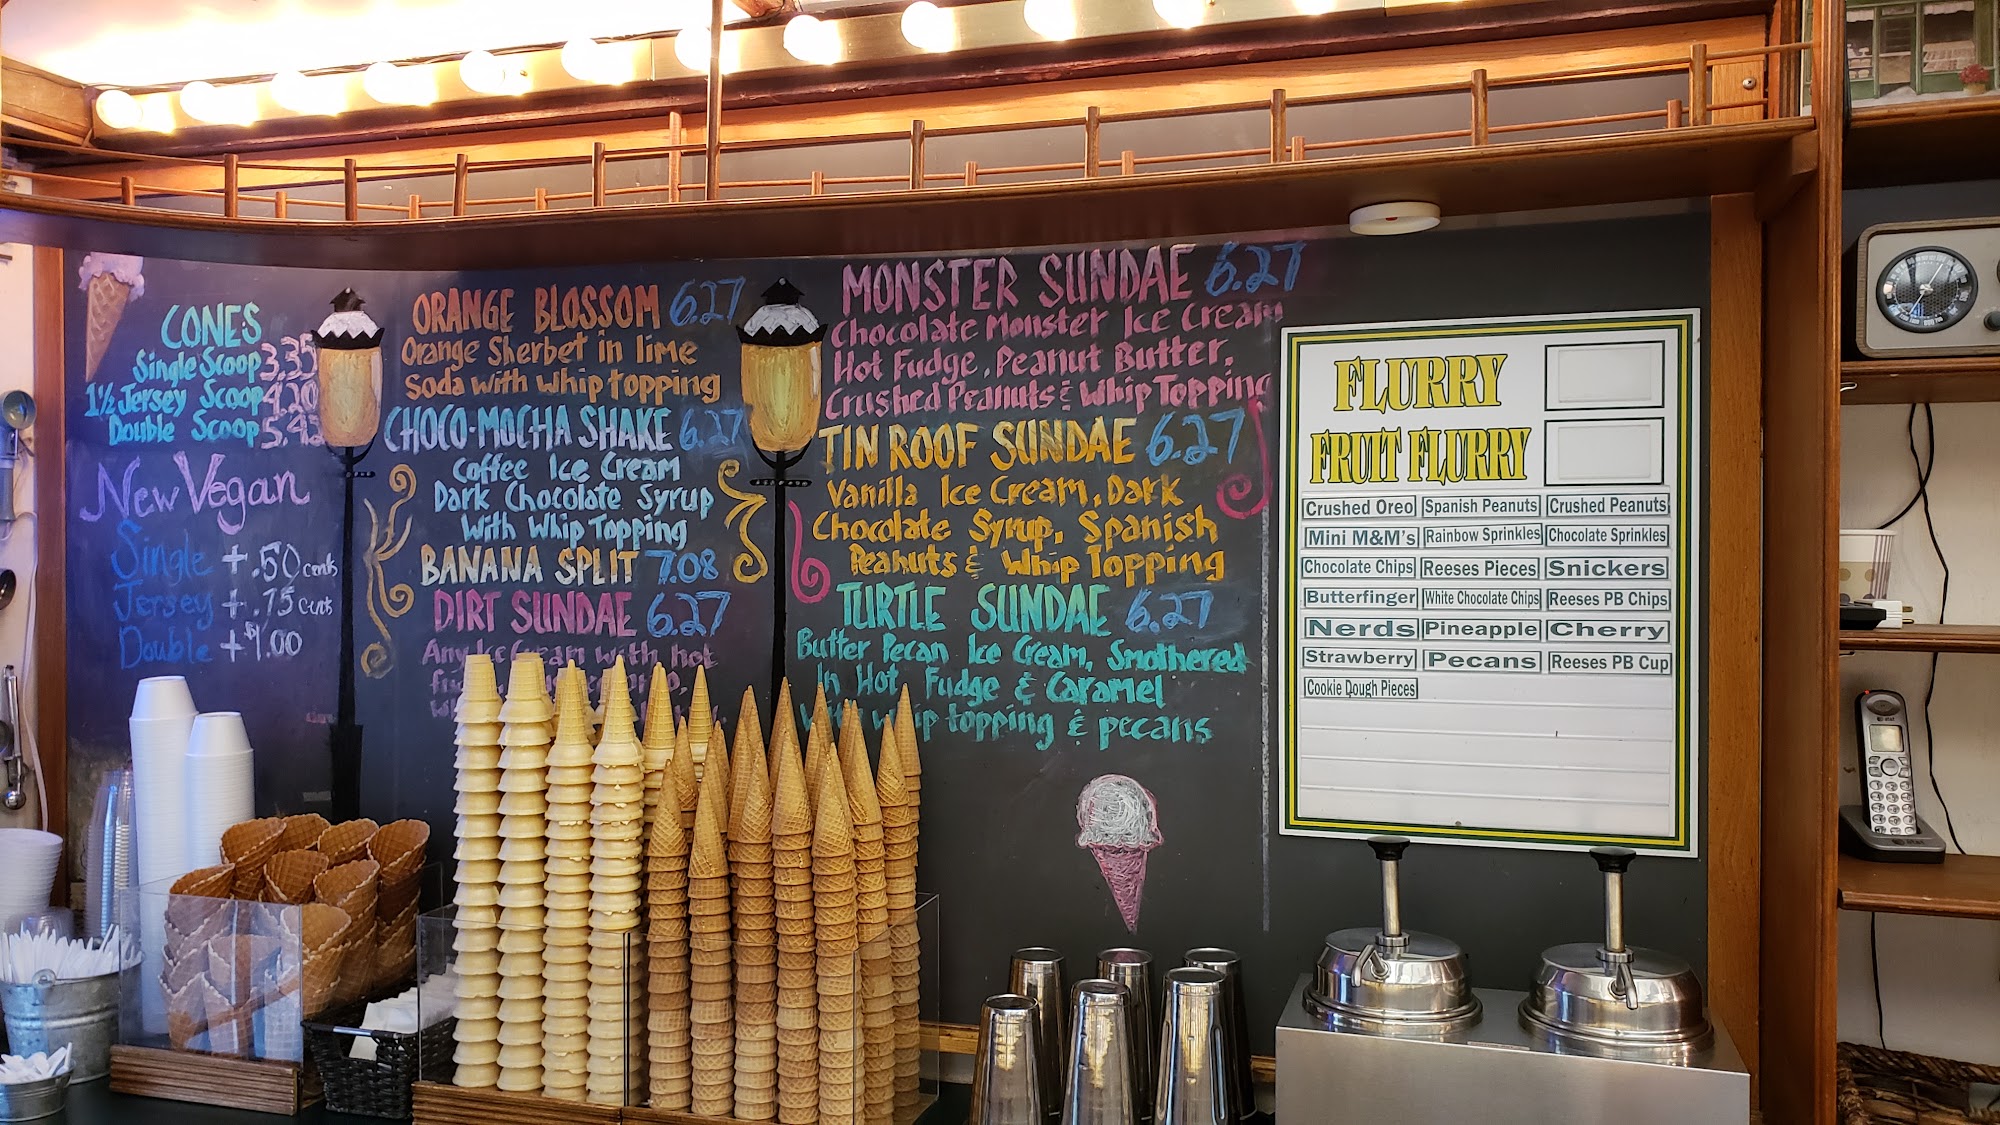 CONES
Single Scoop 3.35
1½ Jersey Scoop 4.20
Double Scoop 5.42
New Vegan
Single +.50 cents
Jersey +.75 cents
Double +$1.00
ORANGE BLOSSOM 6.27
Orange Sherbet in lime
Soda with whip topping
CHOCO-MOCHA SHAKE 6.27
Coffee Ice Cream
Dark Chocolate Syrup
With Whip Topping
BANANA SPLIT 7.08
DIRT SUNDAE 6.27
Any Ice Cream with hot
MONSTER SUNDAE 6.27
Chocolate Monster Ice Cream
Hot Fudge, Peanut Butter,
Crushed Peanuts & Whip Topping
TIN ROOF SUNDAE 6.27
Vanilla Ice Cream, Dark
Chocolate Syrup, Spanish
Peanuts & Whip Topping
TURTLE SUNDAE 6.27
Butter Pecan Ice Cream, Smothered
In Hot Fudge & Caramel
With whip topping & pecans
FLURRY
FRUIT FLURRY
Crushed Oreo Spanish Peanuts Crushed Peanuts
Mini M&M's Rainbow Sprinkles Chocolate Sprinkles
Chocolate Chips Reeses Pieces Snickers
Butterfinger White Chocolate Chips Reeses PB Chips
Nerds Pineapple Cherry
Strawberry Pecans Reeses PB Cup
Cookie Dough Pieces
at&t